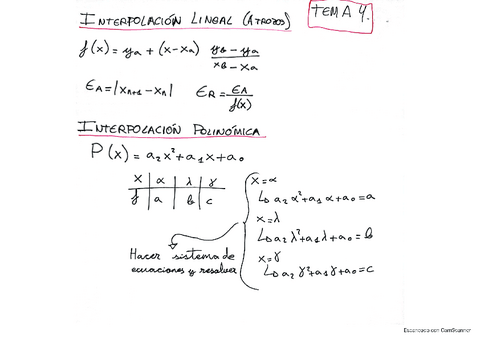 INTERPOLACIÓN LINEAL (A TROZOS)
TEMA 4.
f(x) = ya + (x-xa) (yb - ya)/(xb - xa)
EA = |xn+1 - xn|   ER = EA/f(x)
INTERPOLACIÓN POLINÓMICA
P(x) = a2x² + a1x + a0
x | α | λ | γ
f | a | b | c
x = α
↳ a2 α² + a1 α + a0 = a
x = λ
↳ a2 λ² + a1 λ + a0 = b
x = γ
↳ a2 γ² + a1 γ + a0 = c
Hacer sistema de
ecuaciones y resolver
Escaneado con CamScanner